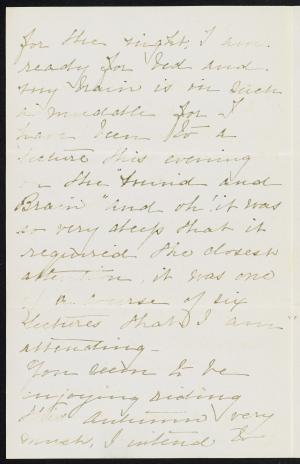 for the night, I am
ready for bed and
my brain is in such
a muddle for I
have been to a
lecture this evening
on the "Mind and
Brain" and oh! it was
so very deep that it
required the closest
attention, it was one
of a course of six
lectures that I am
attending—
You seem to be
enjoying riding
this autumn very
much, I intend to